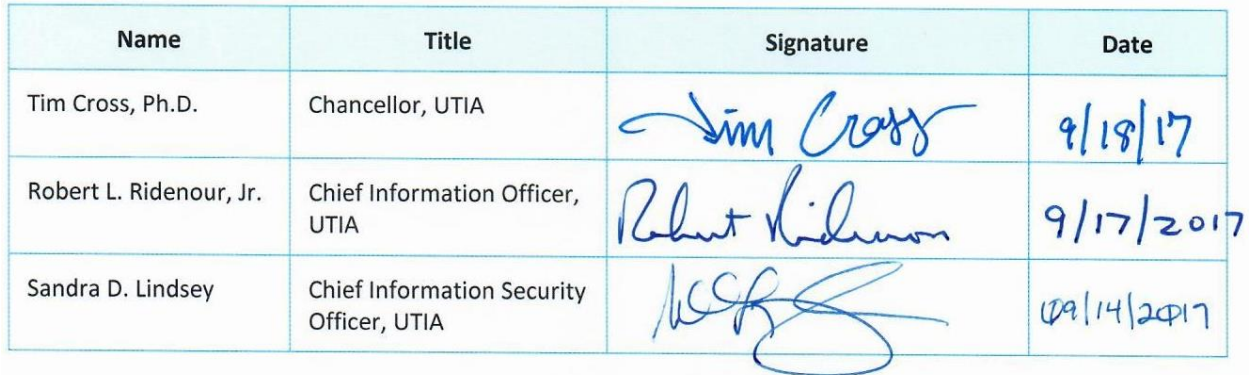 Name Title Signature Date
Tim Cross, Ph.D. Chancellor, UTIA Tim Cross 9/18/17
Robert L. Ridenour, Jr. Chief Information Officer, Robert Ridenour 9/17/2017
UTIA
Sandra D. Lindsey Chief Information Security 09/14/2017
Officer, UTIA